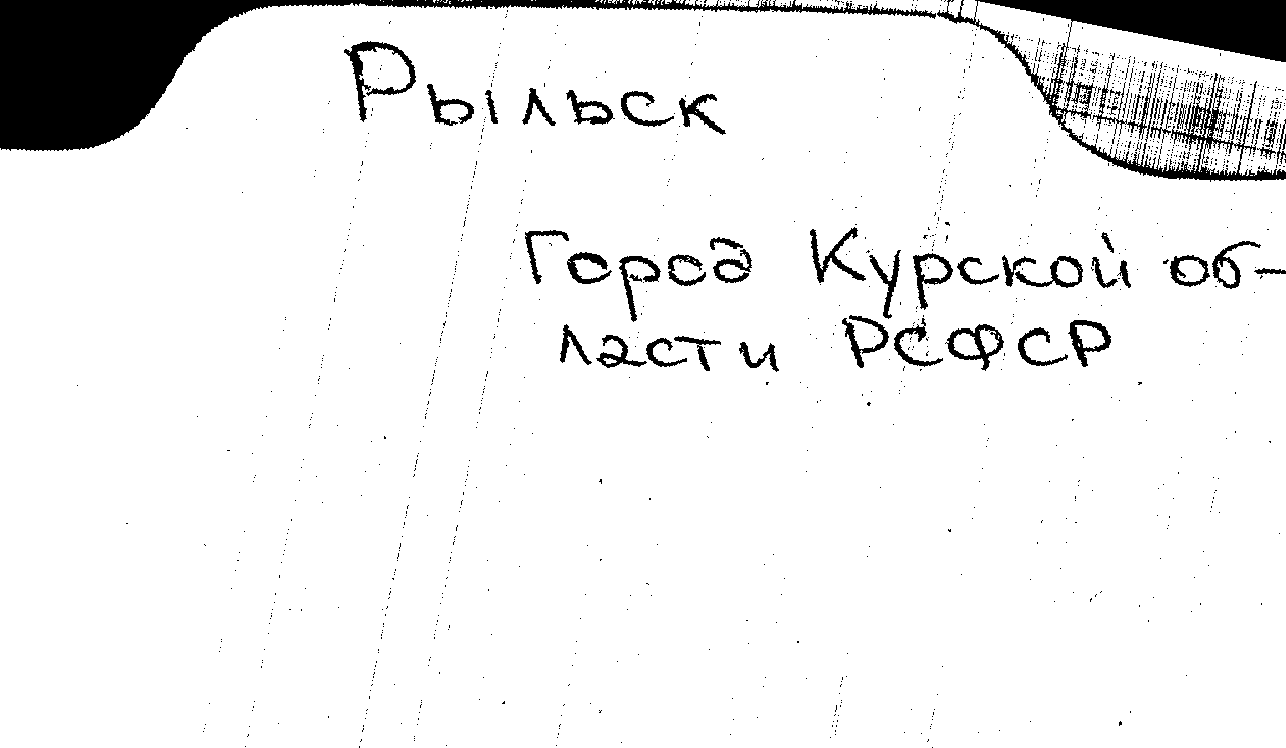 Рыльск
Город Курской об-
ласти РСФСР